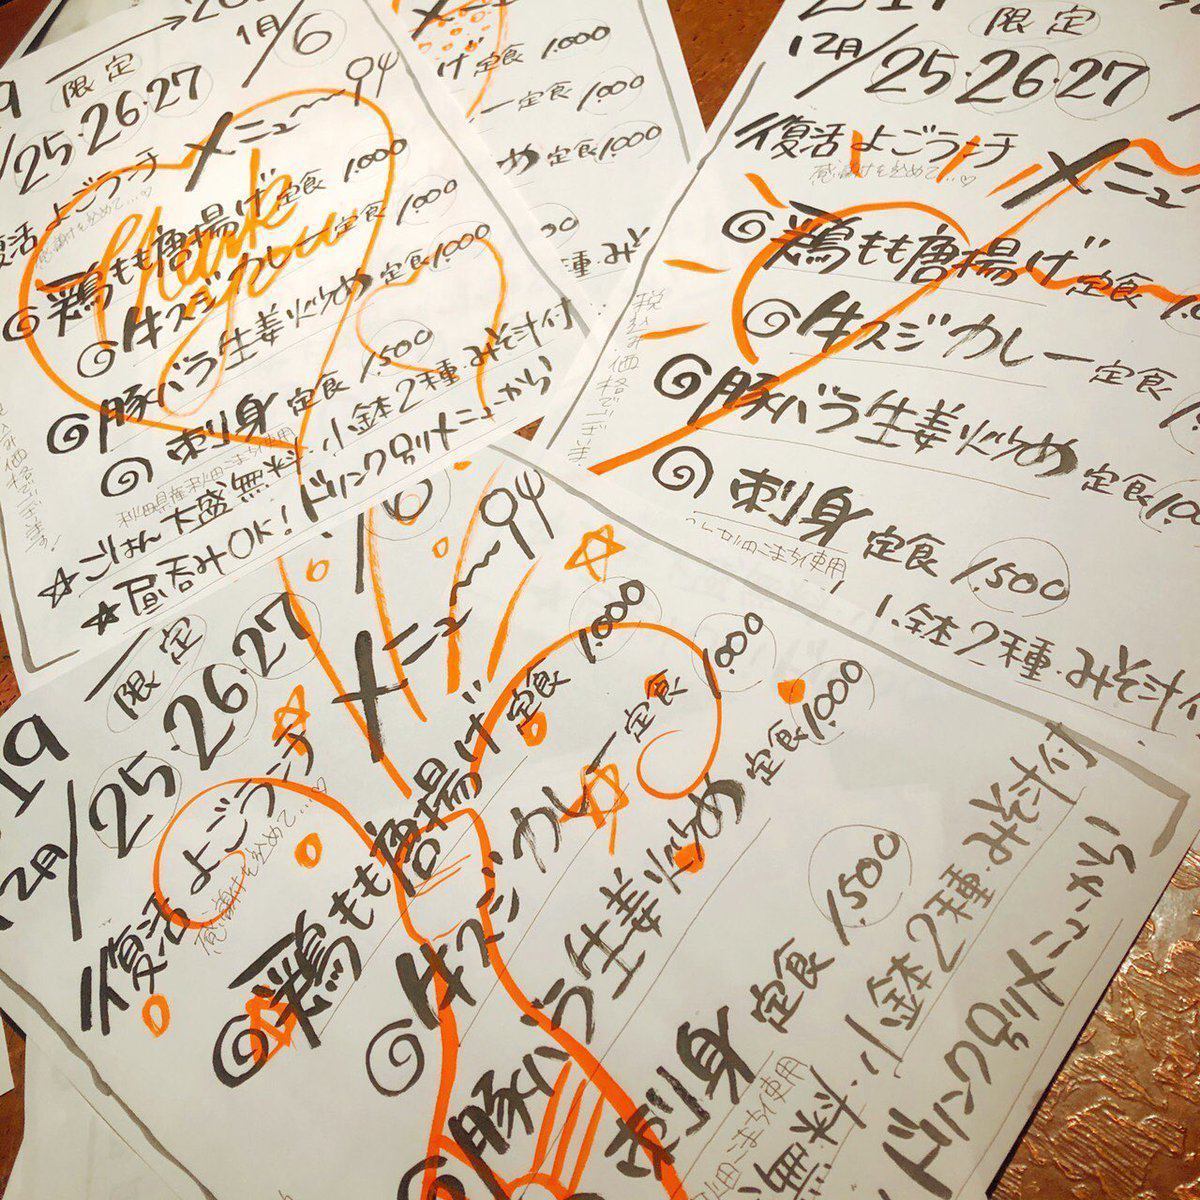 19 → 20
限定
1月/6
/25・26・27
復活 よごランチ メニュー
感謝を込めて…♡
Thank you
鶏もも唐揚げ定食 1,000
牛スジカレー定食 1,000
豚バラ生姜炒め定食 1,000
刺身定食 1,500
秋田県産秋田こまち使用
☆ごはん大盛無料 小鉢2種・みそ汁付
★昼呑みOK! ドリンク別メニューから
メ
げ定食 1,000
ー定食 1,000
め定食 1,000
00
種・みそ
限定
12月/25・26・27
復活 よごランチ メニュー
感謝を込めて…♡
鶏もも唐揚げ定食 1,0
牛スジカレー定食
豚バラ生姜炒め定食 1,00
刺身定食 1,500
秋田こまち使用
小鉢2種・みそ汁
税込み価格でございます
19
限定
/6
12月/25・26・27
復活 よごランチ メニュー
感謝を込めて…♡
鶏もも唐揚げ定食 1,000
牛スジカレー定食 1,000
豚バラ生姜炒め定食 1,000
刺身定食 1,500
田こまち使用
料 小鉢2種・みそ汁付
ドリンク別メニューから